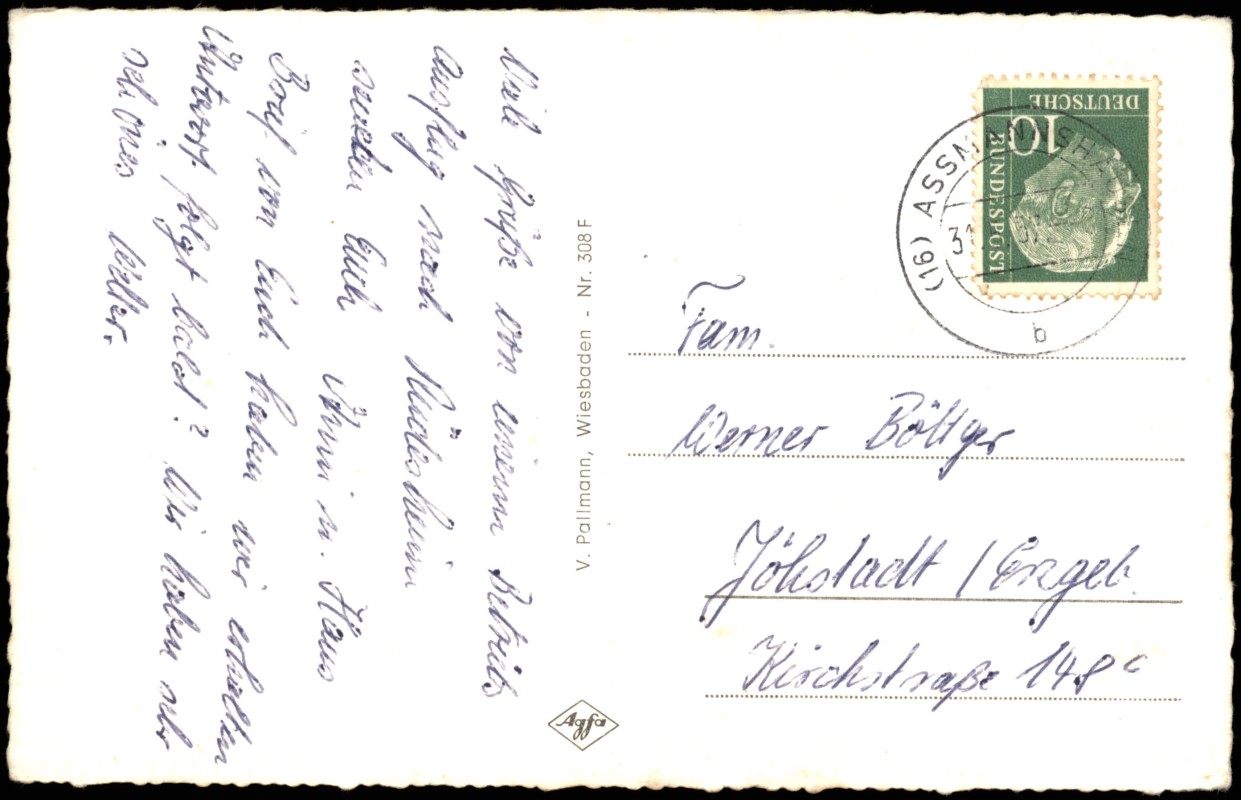 Viele Grüße von unserm Betriebs
ausflug nach Rüdesheim
senden Euch Anni u. Hans
Brief von Euch haben wir erhalten
Antwort folgt bald? Wir haben sehr
schönes Wetter.
V. Pallmann, Wiesbaden - Nr. 308 F
Agfa
DEUTSCHE
BUNDESPOST
10
(16) ASSMANNSHA
31
b
Fam.
Werner Böttger
Jöhstadt / Erzgeb.
Kirchstraße 148c